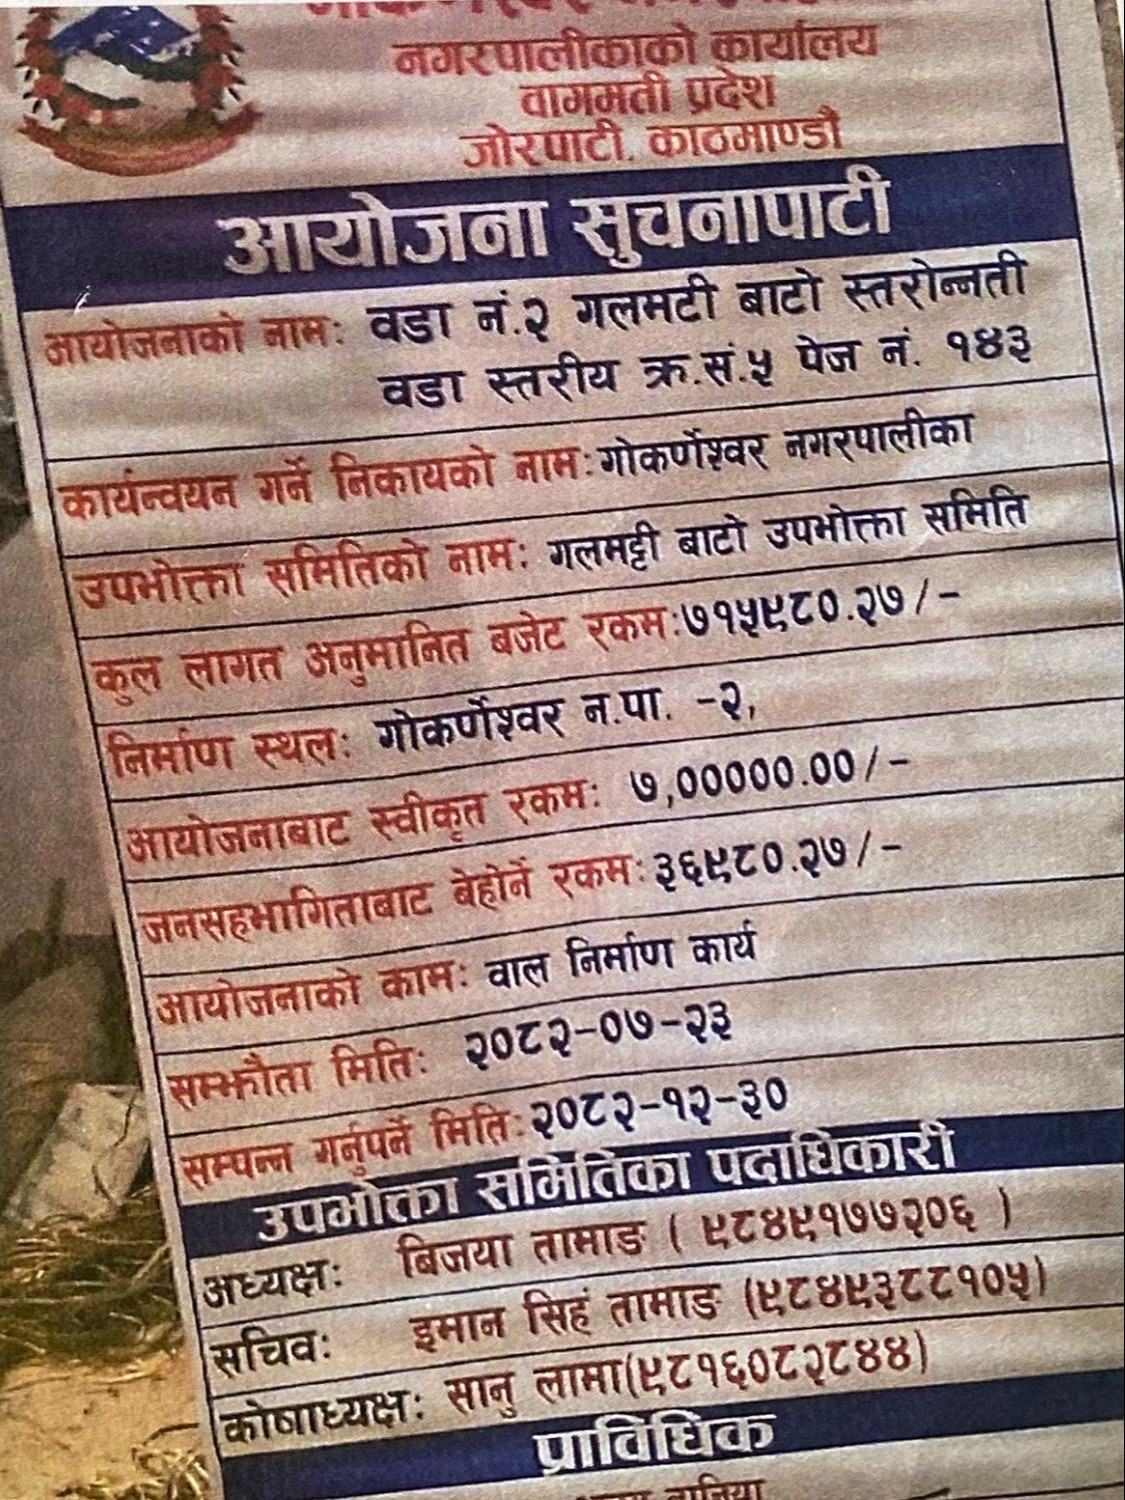 नगरपालीकाको कार्यालय
वागमती प्रदेश
जोरपाटी, काठमाण्डौ
आयोजना सुचनापाटी
आयोजनाको नामः वडा नं.२ गलमटी बाटो स्तरोन्नती
वडा स्तरीय क्र.सं.५ पेज नं. १४३
कार्यन्वयन गर्ने निकायको नामः गोकर्णेश्वर नगरपालीका
उपभोक्ता समितिको नामः गलमट्टी बाटो उपभोक्ता समिति
कुल लागत अनुमानित बजेट रकमः ७१५९८०.२७/-
निर्माण स्थलः गोकर्णेश्वर न.पा. -२,
आयोजनाबाट स्वीकृत रकमः ७,०००००.००/-
जनसहभागिताबाट बेहोर्ने रकमः ३६९८०.२७/-
आयोजनाको कामः वाल निर्माण कार्य
सम्झौता मितिः २०८२-०७-२३
सम्पन्न गर्नुपर्ने मितिः २०८२-१२-३०
उपभोक्ता समितिका पदाधिकारी
अध्यक्षः बिजया तामाङ ( ९८४९१७७२०६ )
सचिवः इमान सिहं तामाङ (९८४९३८८१०५)
कोषाध्यक्षः सानु लामा(९८१६०८२८४४)
प्राविधिक